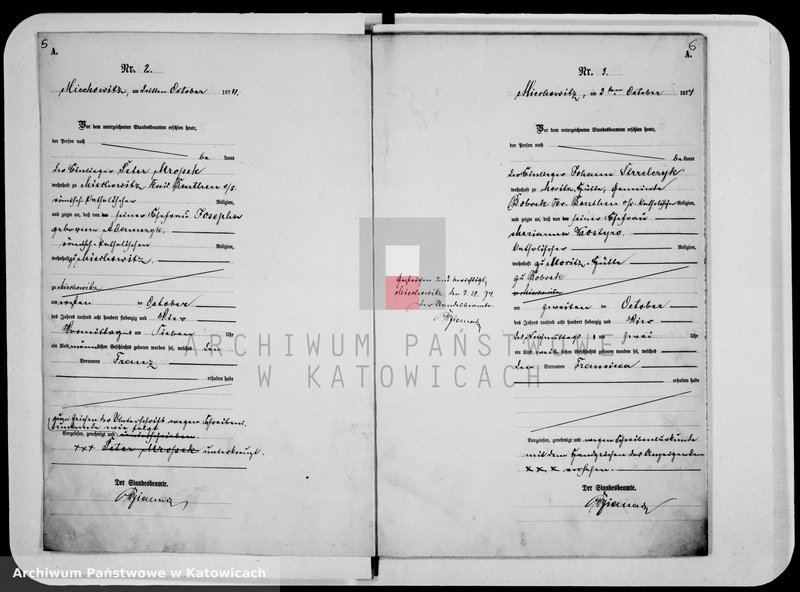 5
A.
Nr. 2.
Miechowitz, am dritten October 1874.
Vor dem unterzeichneten Standesbeamten erschien heute,
der Person nach
be kannt
der Einlieger Peter Mrosek
wohnhaft zu Miechowitz Kreis Beuthen o/s.
römisch-katholischer Religion,
und zeigte an, daß von seiner Ehefrau Josepha
geborenen
römisch-katholischen Religion,
wohnhaft zu Miechowitz.
zu Miechowitz
am ersten October
des Jahres tausend acht hundert siebenzig und vier
Vormittags um sieben Uhr
ein Kind männlichen Geschlechts geboren worden sei, welches den
Vornamen Franz
erhalten habe
zum Zeichen der Unterschrift wegen Schreibens
unkunde wie folgt
Vorgelesen, genehmigt und unterschrieben.
+++ Peter Mrosek unterkreuzt.
Der Standesbeamte.
6
A.
Nr. 3.
Miechowitz, am 3ten October 1874
Vor dem unterzeichneten Standesbeamten erschien heute,
der Person nach
be kannt
der Einlieger Johann Strzelczyk
wohnhaft zu Moritz-Hütte, Gemeinde
Bobrek Kr. Beuthen o/s. katholischer Religion,
und zeigte an, daß von seiner Ehefrau
Marianna
katholischer Religion,
wohnhaft zu Moritz-Hütte
zu Bobrek
zu Miechowitz
am zweiten October
des Jahres tausend acht hundert siebenzig und vier
des Nachmittags um zwei Uhr
ein Kind weiblichen Geschlechts geboren worden sei, welches
den Vornamen Francisca
erhalten habe
Vorgelesen, genehmigt und wegen Schreibensunkunde
mit dem Handzeichen des Anzeigenden
x x x versehen.
Der Standesbeamte.
Miechowitz, den 3. 10. 74.
der Standesbeamte.
ARCHIWUM PAŃSTWOWE
W KATOWICACH
Archiwum Państwowe w Katowicach